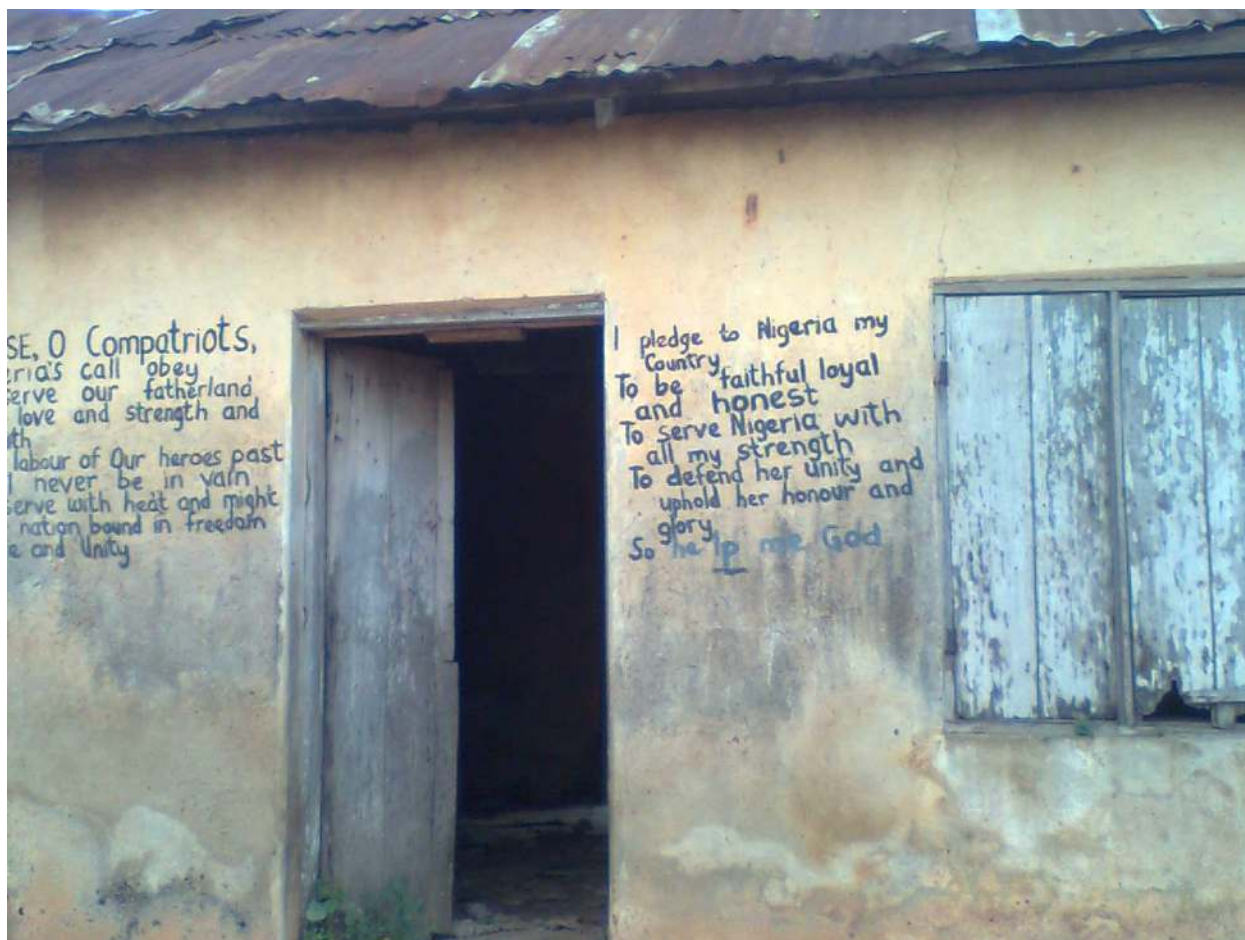 SE, O Compatriots,
eria's call obey
erve our fatherland
love and strength and
th
labour of Our heroes past
l never be in vain
serve with heat and might
nation bound in freedom
e and Unity
I pledge to Nigeria my
Country
To be faithful loyal
and honest
To serve Nigeria with
all my strength
To defend her unity and
uphold her honour and
glory
So help me God